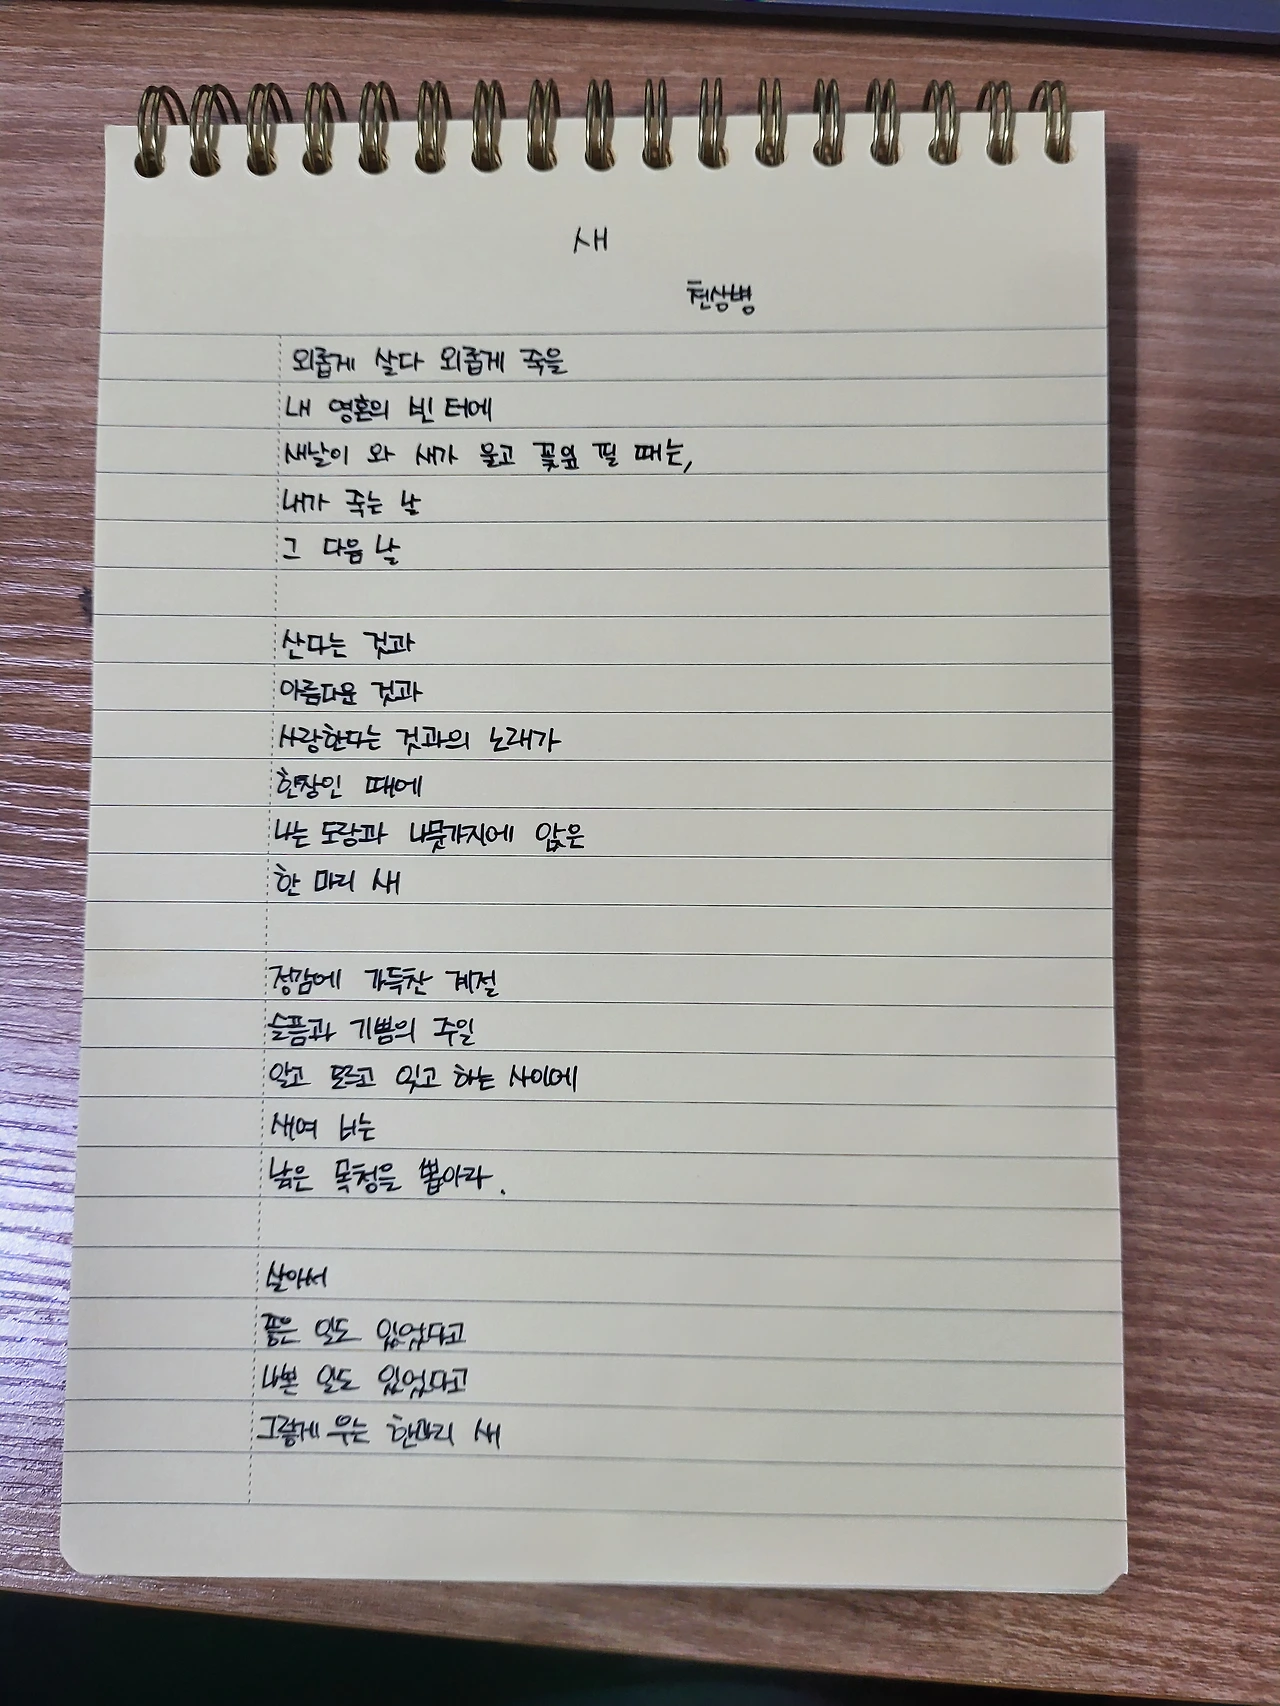 새
천상병
외롭게 살다 외롭게 죽을
내 영혼의 빈 터에
새날이 와 새가 울고 꽃잎 필 때는,
내가 죽는 날
그 다음 날
산다는 것과
아름다운 것과
사랑한다는 것과의 노래가
한창인 때에
나는 도랑과 나뭇가지에 앉은
한 마리 새
정감에 가득찬 계절
슬픔과 기쁨의 주일
알고 모르고 잊고 하는 사이에
새여 너는
낡은 목청을 뽑아라.
살아서
좋은 일도 있었다고
나쁜 일도 있었다고
그렇게 우는 한마리 새